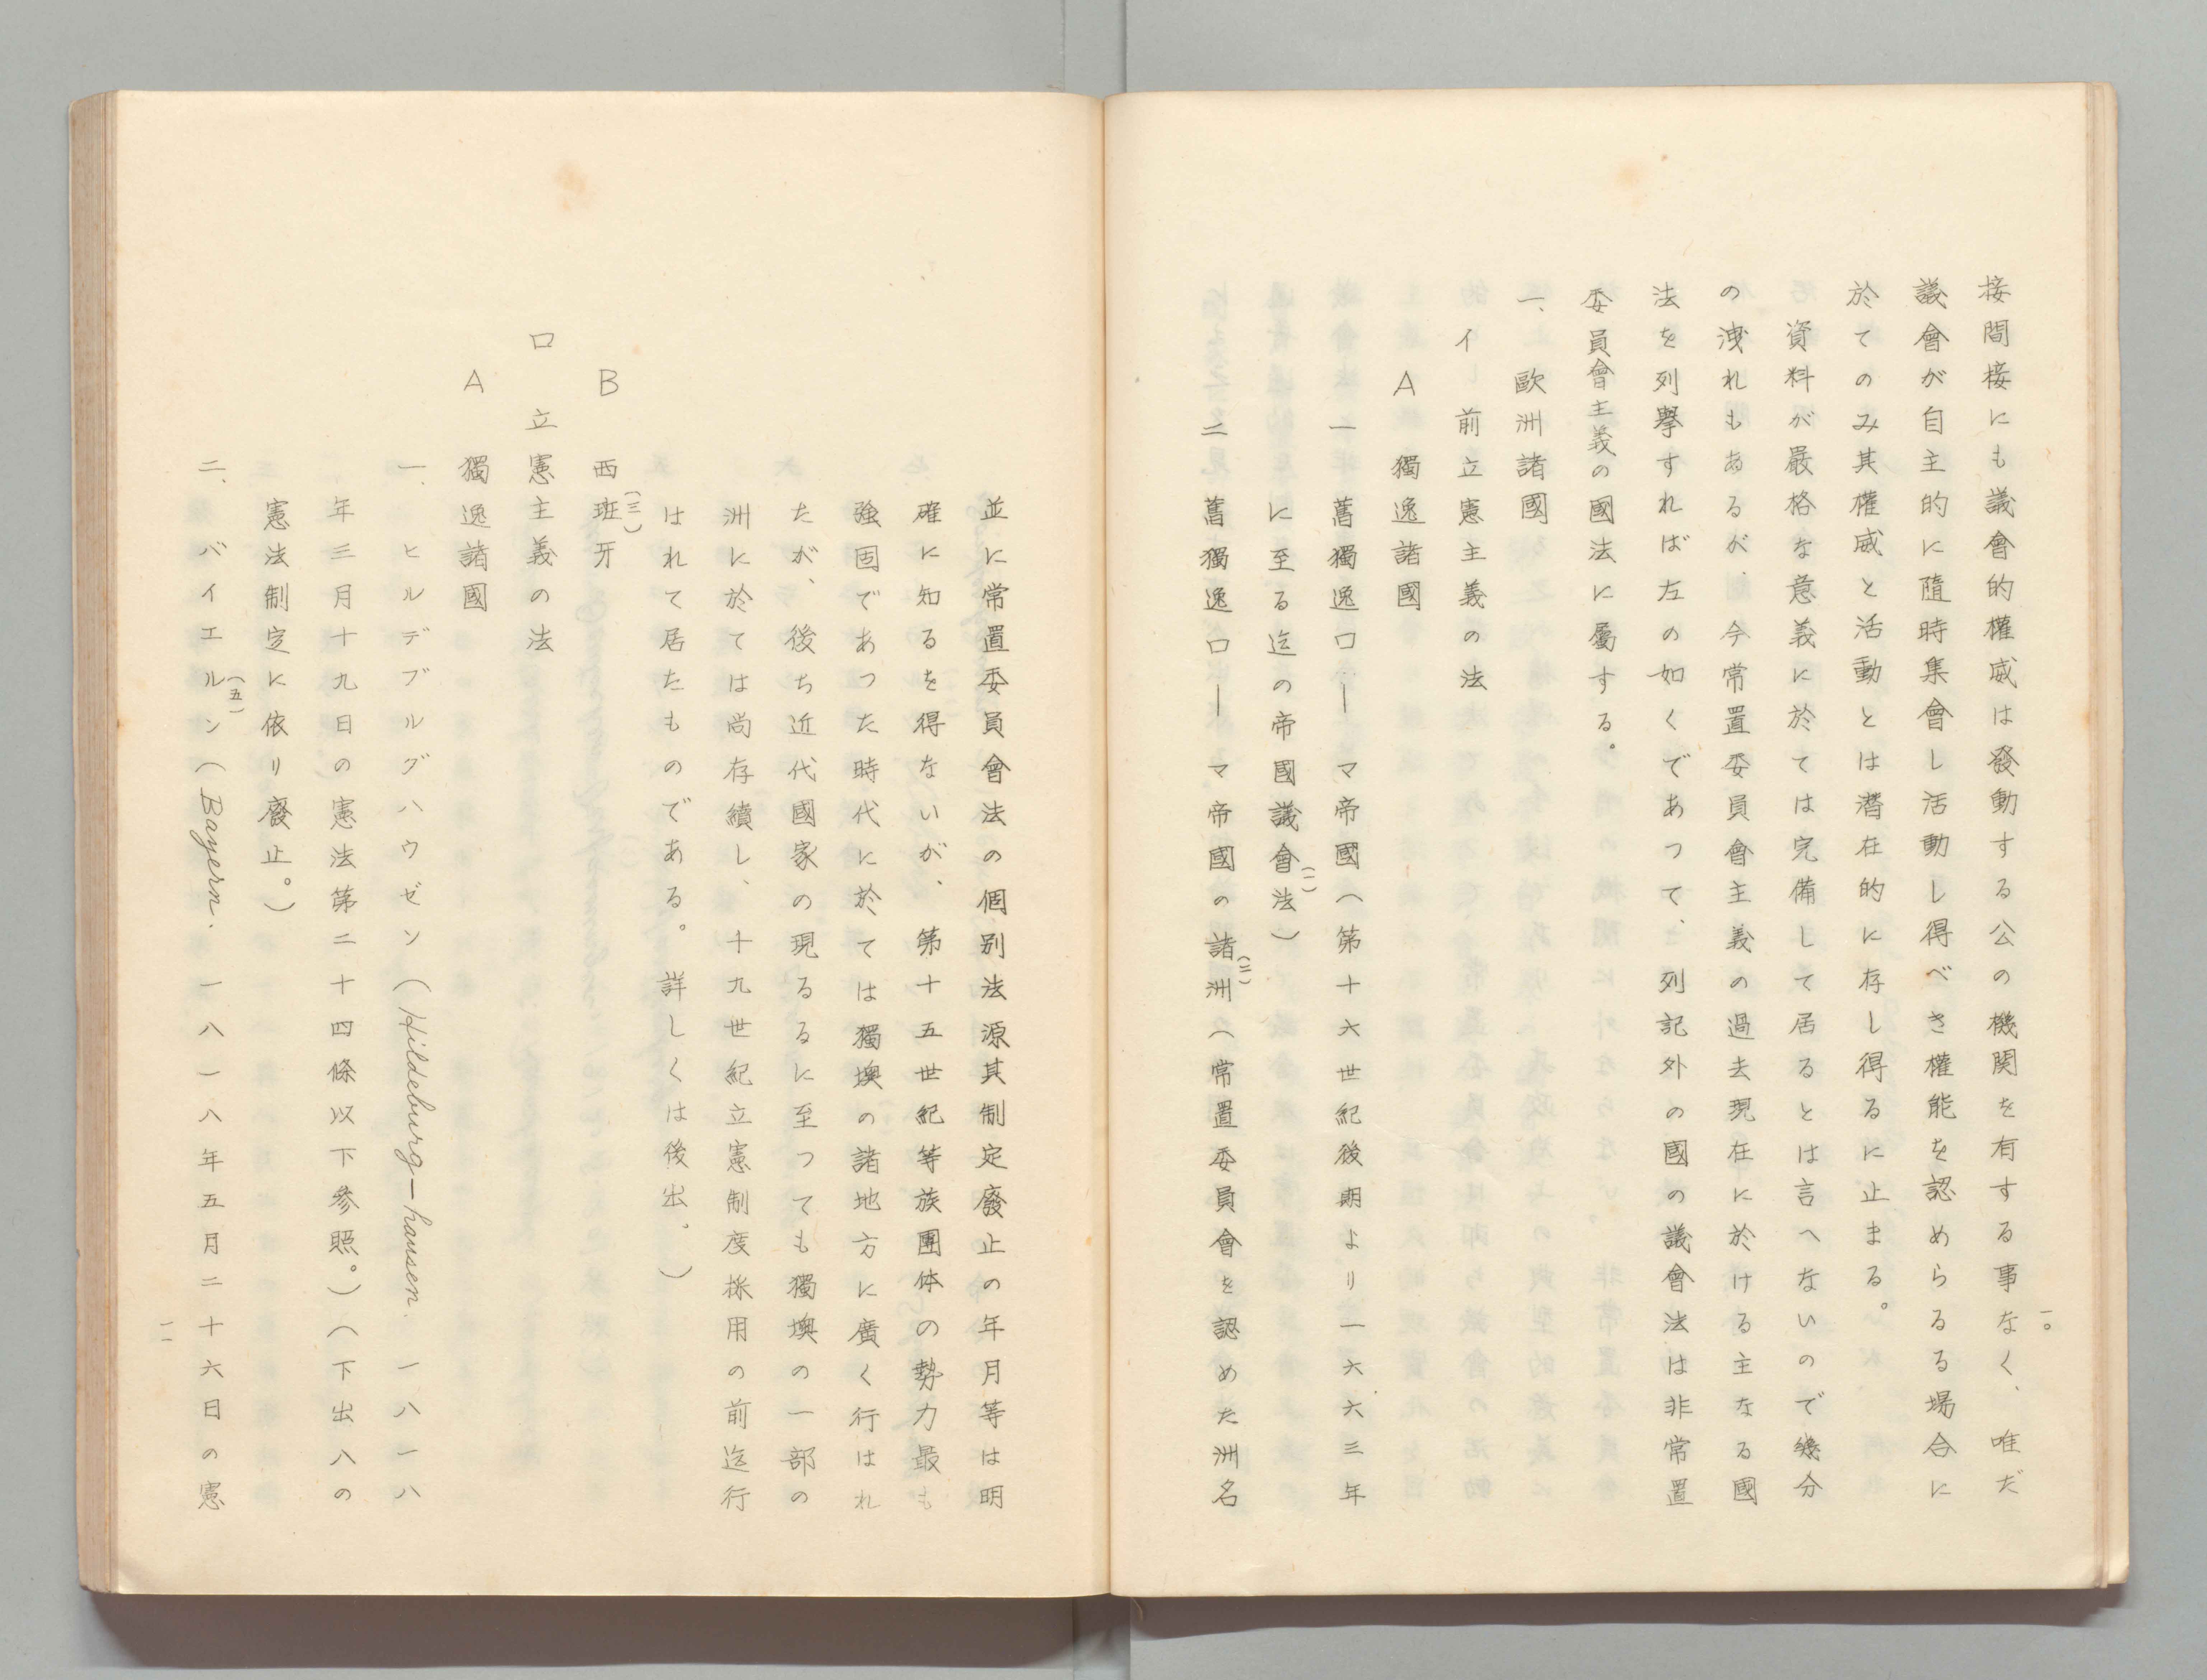 接間接にも議會的權威は發動する公の機関を有する事なく、唯だ
議會が自主的に隨時集會し活動し得べき權能を認めらるる場合に
於てのみ其權威と活動とは潜在的に存し得るに止まる。
資料が嚴格な意義に於ては完備して居るとは言へないので幾分
の洩れもあるが、今常置委員會主義の過去現在に於ける主なる國
法を列擧すれば左の如くであつて、列記外の國の議會法は非常置
委員會主義の國法に屬する。
一、歐洲諸國
イ 前立憲主義の法
A 獨逸諸國
一 舊獨逸ローマ帝國(第十六世紀後期より一六六三年
に至る迄の帝國議會法)(一)
二 舊獨逸ローマ帝國の諸洲(二)(常置委員會を認めた洲名
一〇
並に常置委員會法の個別法源其制定廢止の年月等は明
確に知るを得ないが、第十五世紀等族團体の勢力最も
強固であつた時代に於ては獨墺の諸地方に廣く行はれ
たが、後ち近代國家の現るるに至つても獨墺の一部の
洲に於ては尚存續し、十九世紀立憲制度採用の前迄行
はれて居たものである。詳しくは後出。)
B 西班牙(三)
ロ 立憲主義の法
A 獨逸諸國
一、ヒルデブルグハウゼン(Hildeburg—hausen. 一八一八
年三月十九日の憲法第二十四條以下參照。)(下出八の
憲法制定に依り廢止。)
二、バイエルン(五)(Bayern. 一八一八年五月二十六日の憲
一一